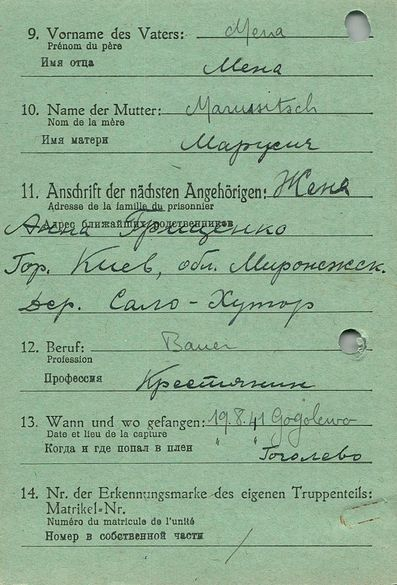 9. Vorname des Vaters: Mena
Prénom du père
Имя отца
Мена
10. Name der Mutter: Marussitsch
Nom de la mère
Имя матери
Марусич
11. Anschrift der nächsten Angehörigen: Жена
Adresse de la famille du prisonnier
Адрес ближайших родственников
Анна Грищенко
Гор. Киев, обл. Миронежск.
дер. Сало-Хутор
12. Beruf: Bauer
Profession
Профессия
Крестянин
13. Wann und wo gefangen: 19.8.41 Gogolewo
Date et lieu de la capture
Когда и где попал в плен " "
Гоголево
14. Nr. der Erkennungsmarke des eigenen Truppenteils:
Matrikel-Nr.
Numéro du matricule de l'unité
Номер в собственной части /